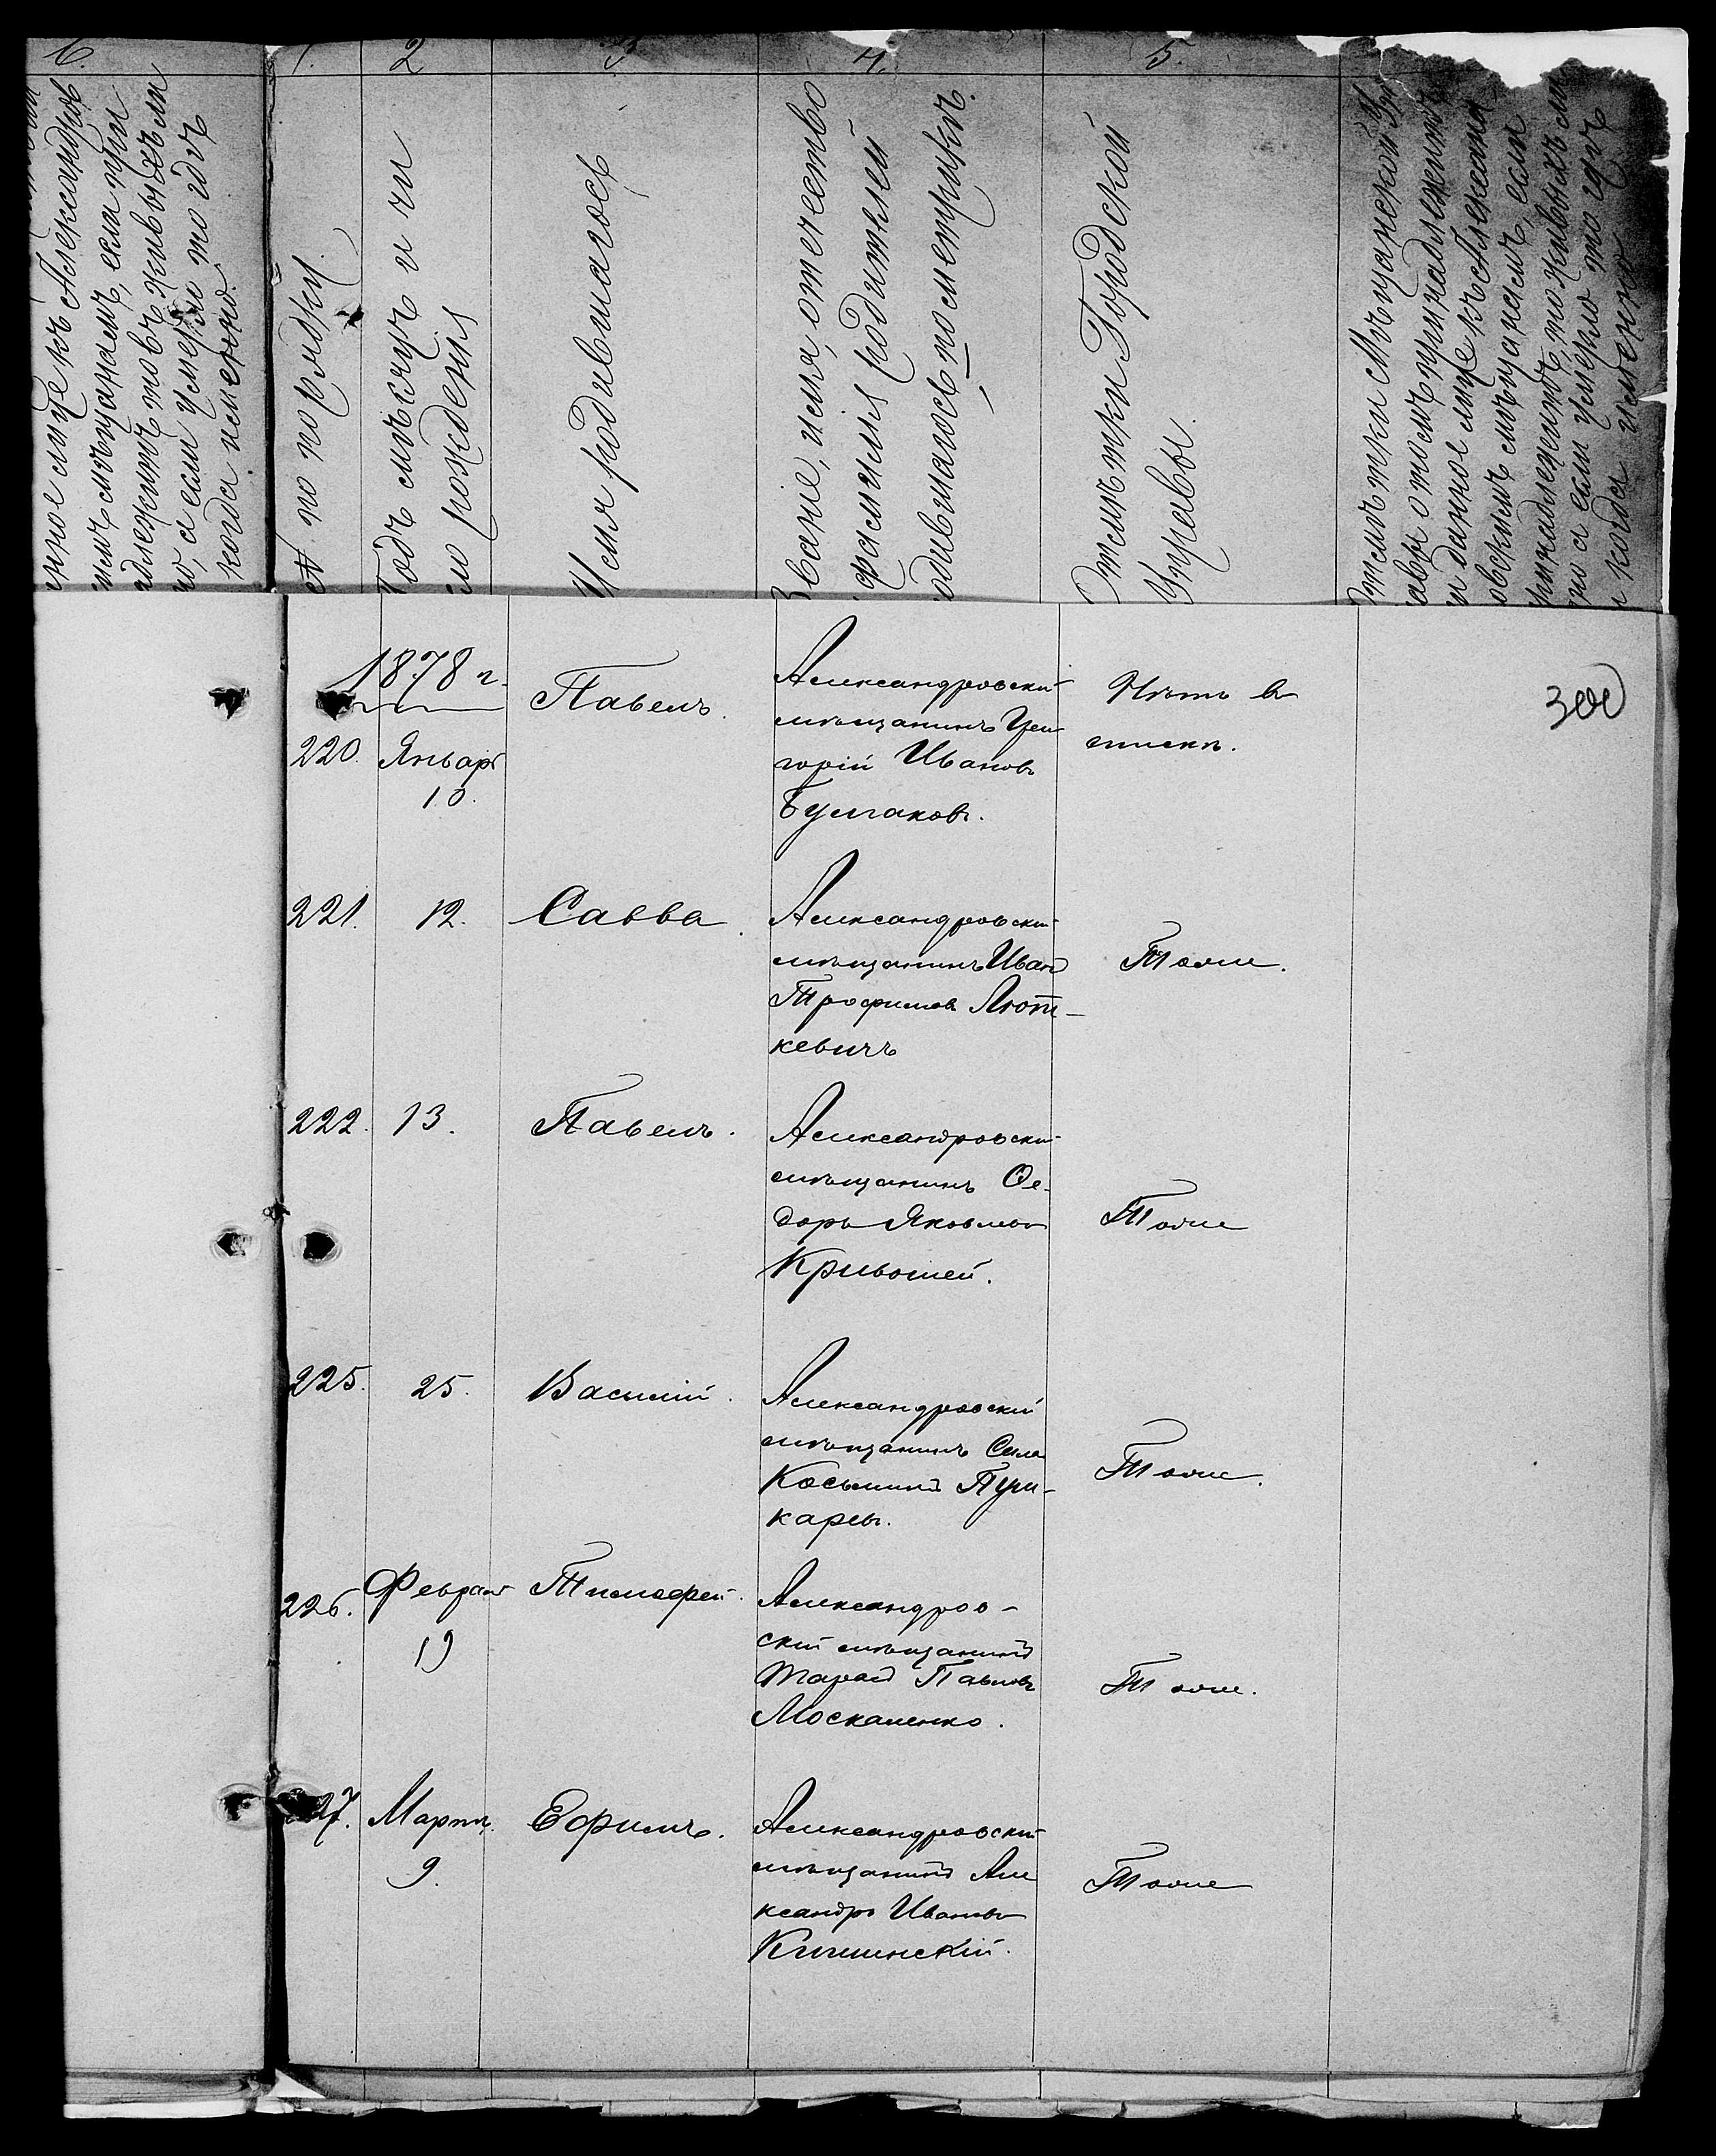 6.
1.
2
3
4.
5.
нное лице къ Александров
мъ мѣщанамъ, если при
длежитъ то въ живыхъ ли
но, а если умерло то годъ
когда именно.
№ по порядку.
Годъ мѣсяцъ и чи
сло рожденія
Имя родившагося
Званіе, имя, отечество
фамилія родителей
одившагося по метрикѣ.
Отмѣтки Городской
Управы.
Отмѣтки Мѣщанской Упр
авы о томъ принадлежитъ
и данное лице къ Алексан
овскимъ мѣщанамъ, если
принадлежитъ, то живыхъ ли
но а если умерло то годъ
и когда именно
1878 г.
300
220. Январ 10. Павелъ. Александровскій
мѣщанинъ Гри-
горій Ивановъ
Булгаковъ.
Нѣтъ въ
спискѣ.
221. 12. Савва. Александровскій
мѣщанинъ Иванъ
Трофимовъ Лют-
кевичъ
Тоже.
222. 13. Павелъ. Александровскій
мѣщанинъ Ѳе-
доръ Яковлевъ
Кривошей.
Тоже
225. 25. Василій. Александровскій
мѣщанинъ Сила
Косьминъ Пуш-
каревъ.
Тоже.
226. Феврал 19 Тимофей. Александров-
скій мѣщанинъ
Тарасъ Павловъ
Москаленко.
Тоже.
227. Мартъ. 9. Ефимъ. Александровскій
мѣщанинъ Але
ксандръ Ивановъ
Кишинскій.
Тоже